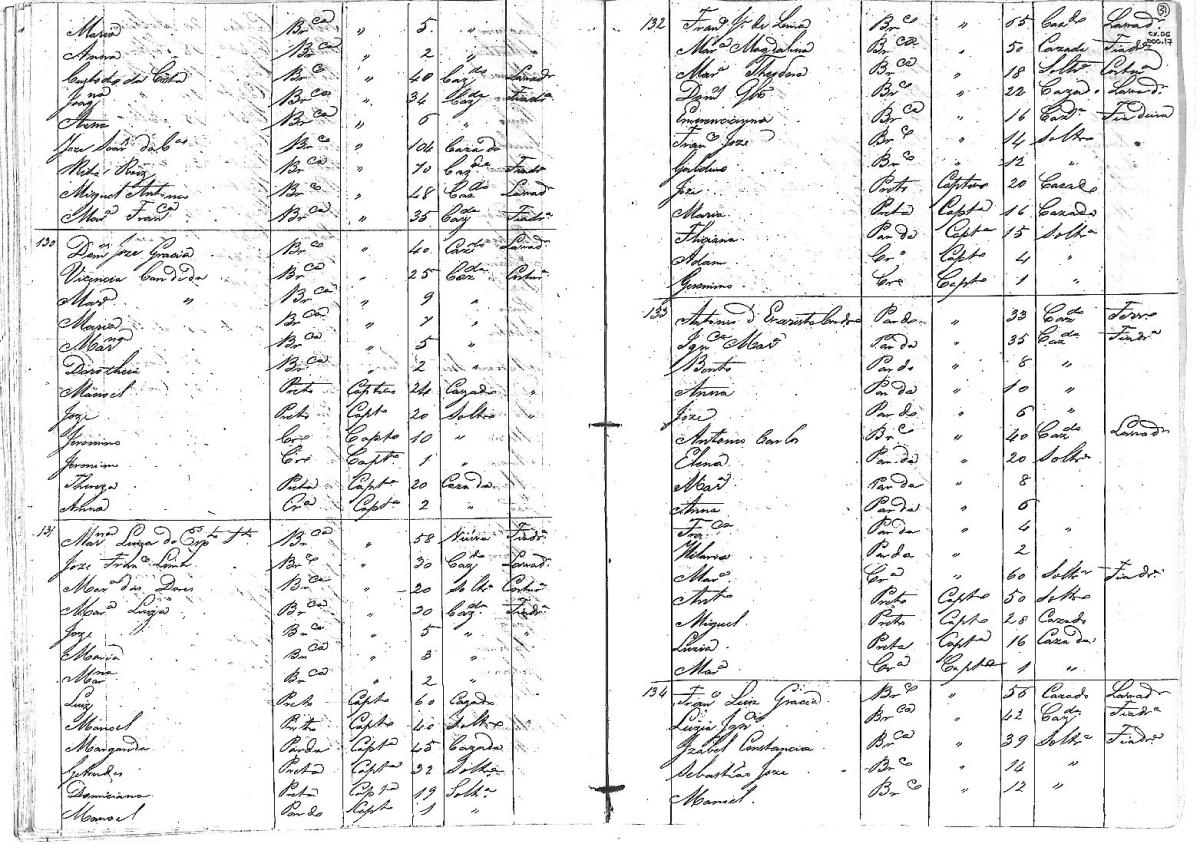 Maria Br.ca " 5 "
Anna Br.ca " 2 "
Custodio da Costa Br.co " 40 Caz.do Lavrad.r
Joaq.na Br.ca " 34 Caz.da Fiad.ra
Anna Br.ca " 6 "
Joze da C.os Br.co " 104 Cazado
Rita Ruiz Br.ca " 70 Caz.da Fiad.ra
Miguel Antonio Br.co " 48 Caz.do Lavrad.r
Mar.a Fran.ca Br.ca " 35 Caz.da Fiad.ra
130 Dom.os Joze Gracia Br.co " 40 Caz.do Lavrad.r
Vicencia Candida Br.ca " 25 Caz.da Costur.a
Mar.a " Br.ca " 9 "
Maria Br.ca " 7 "
Mar.na Br.ca " 5 "
Dorotheia Br.ca " 2 "
Manoel Preto Captivo 24 Cazado "
Joze Preto Capt.o 20 Soltro "
Jeronimo Cro Capt.o 10 "
Jeronimo Cro Capt.o 1 "
Thereza Preta Capt.a 20 Cazada "
Anna Cr.a Capt.a 2 "
131 Mar.na Luiza do Esp.to S.to Br.ca " 58 Viuva Fiadr.a
Joze Fran.co Lima Br.co " 30 Caz.do Lavrad.r
Mar.a das Dores Br.ca " 20 Soltr.a Costur.a
Mar.a Luiza Br.ca " 30 Caz.da Fiadr.a
Joze Br.co " 5 "
Maria Br.ca " 3 "
Mar.na Br.ca " 2 "
Luiz Preto Capt.o 60 Cazado
Manoel Preto Capt.o 40 Soltro
Margarida Parda Capt.a 45 Cazada
Getrudes Preta Capt.a 32 Soltr.a
Domiciana Preta Capt.a 19 Solt.a
Manoel Pardo Capt.o 1 "
31
CX.06
DOC.17
132 Fran.co de Lima Br.co " 65 Cazdo Lavrad.r
Mar.a Magdalina Br.ca " 50 Cazada Fiadr.a
Mar.a Theodora Br.ca " 18 Soltr.a Costur.a
Br.co " 22 Cazado Lavrad.r
Emerenciyna Br.ca " 16 Caz.da Fiadeira
Fran.co Joze Br.co " 14 Soltro
Galdino Br.co " 12 "
Joze Preto Captivo 20 Cazado
Maria Preta Capt.a 16 Cazada
Filiziana Parda Capt.a 15 Solt.a
Adam Cr.o Capt.o 4 "
Geronimo Cro Capt.o 1 "
133 Antonio d' Evaristo Pardo " 33 Caz.do Ferro
Ign.ca Mar.a Parda " 35 Caz.da Fiadr.a
Bento Pardo " 8 "
Anna Parda " 10 "
Joze Pardo " 6 "
Antonio Carlos Br.co " 40 Caz.do Lavrad.r
Elena Parda " 20 Soltr.a
Mar.a Parda " 8
Anna Parda " 6
Fr.ca Parda " 4 "
Parda " 2
Mar.a Cr.a " 60 Soltr.a Fiadr.a
Ant.o Preto Capt.o 50 Soltro
Miguel Preto Capt.o 28 Cazado
Luzia Preta Capt.a 16 Cazada
Mar.a Cr.a Capt.a 1 "
134 Fran.co Luiz Gracia Br.co " 56 Cazado Lavradr
Luzia Ign.ca Br.ca " 42 Caz.da Fiadr.a
Yzabel Constancia Br.ca " 39 Soltr.a Fiadr.a
Sebastião Joze Br.co " 14 "
Manoel Br.co " 12 "